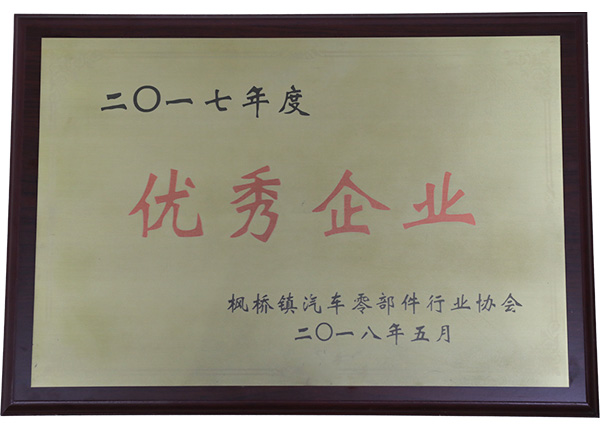 二〇一七年度
优秀企业
枫桥镇汽车零部件行业协会
二〇一八年五月